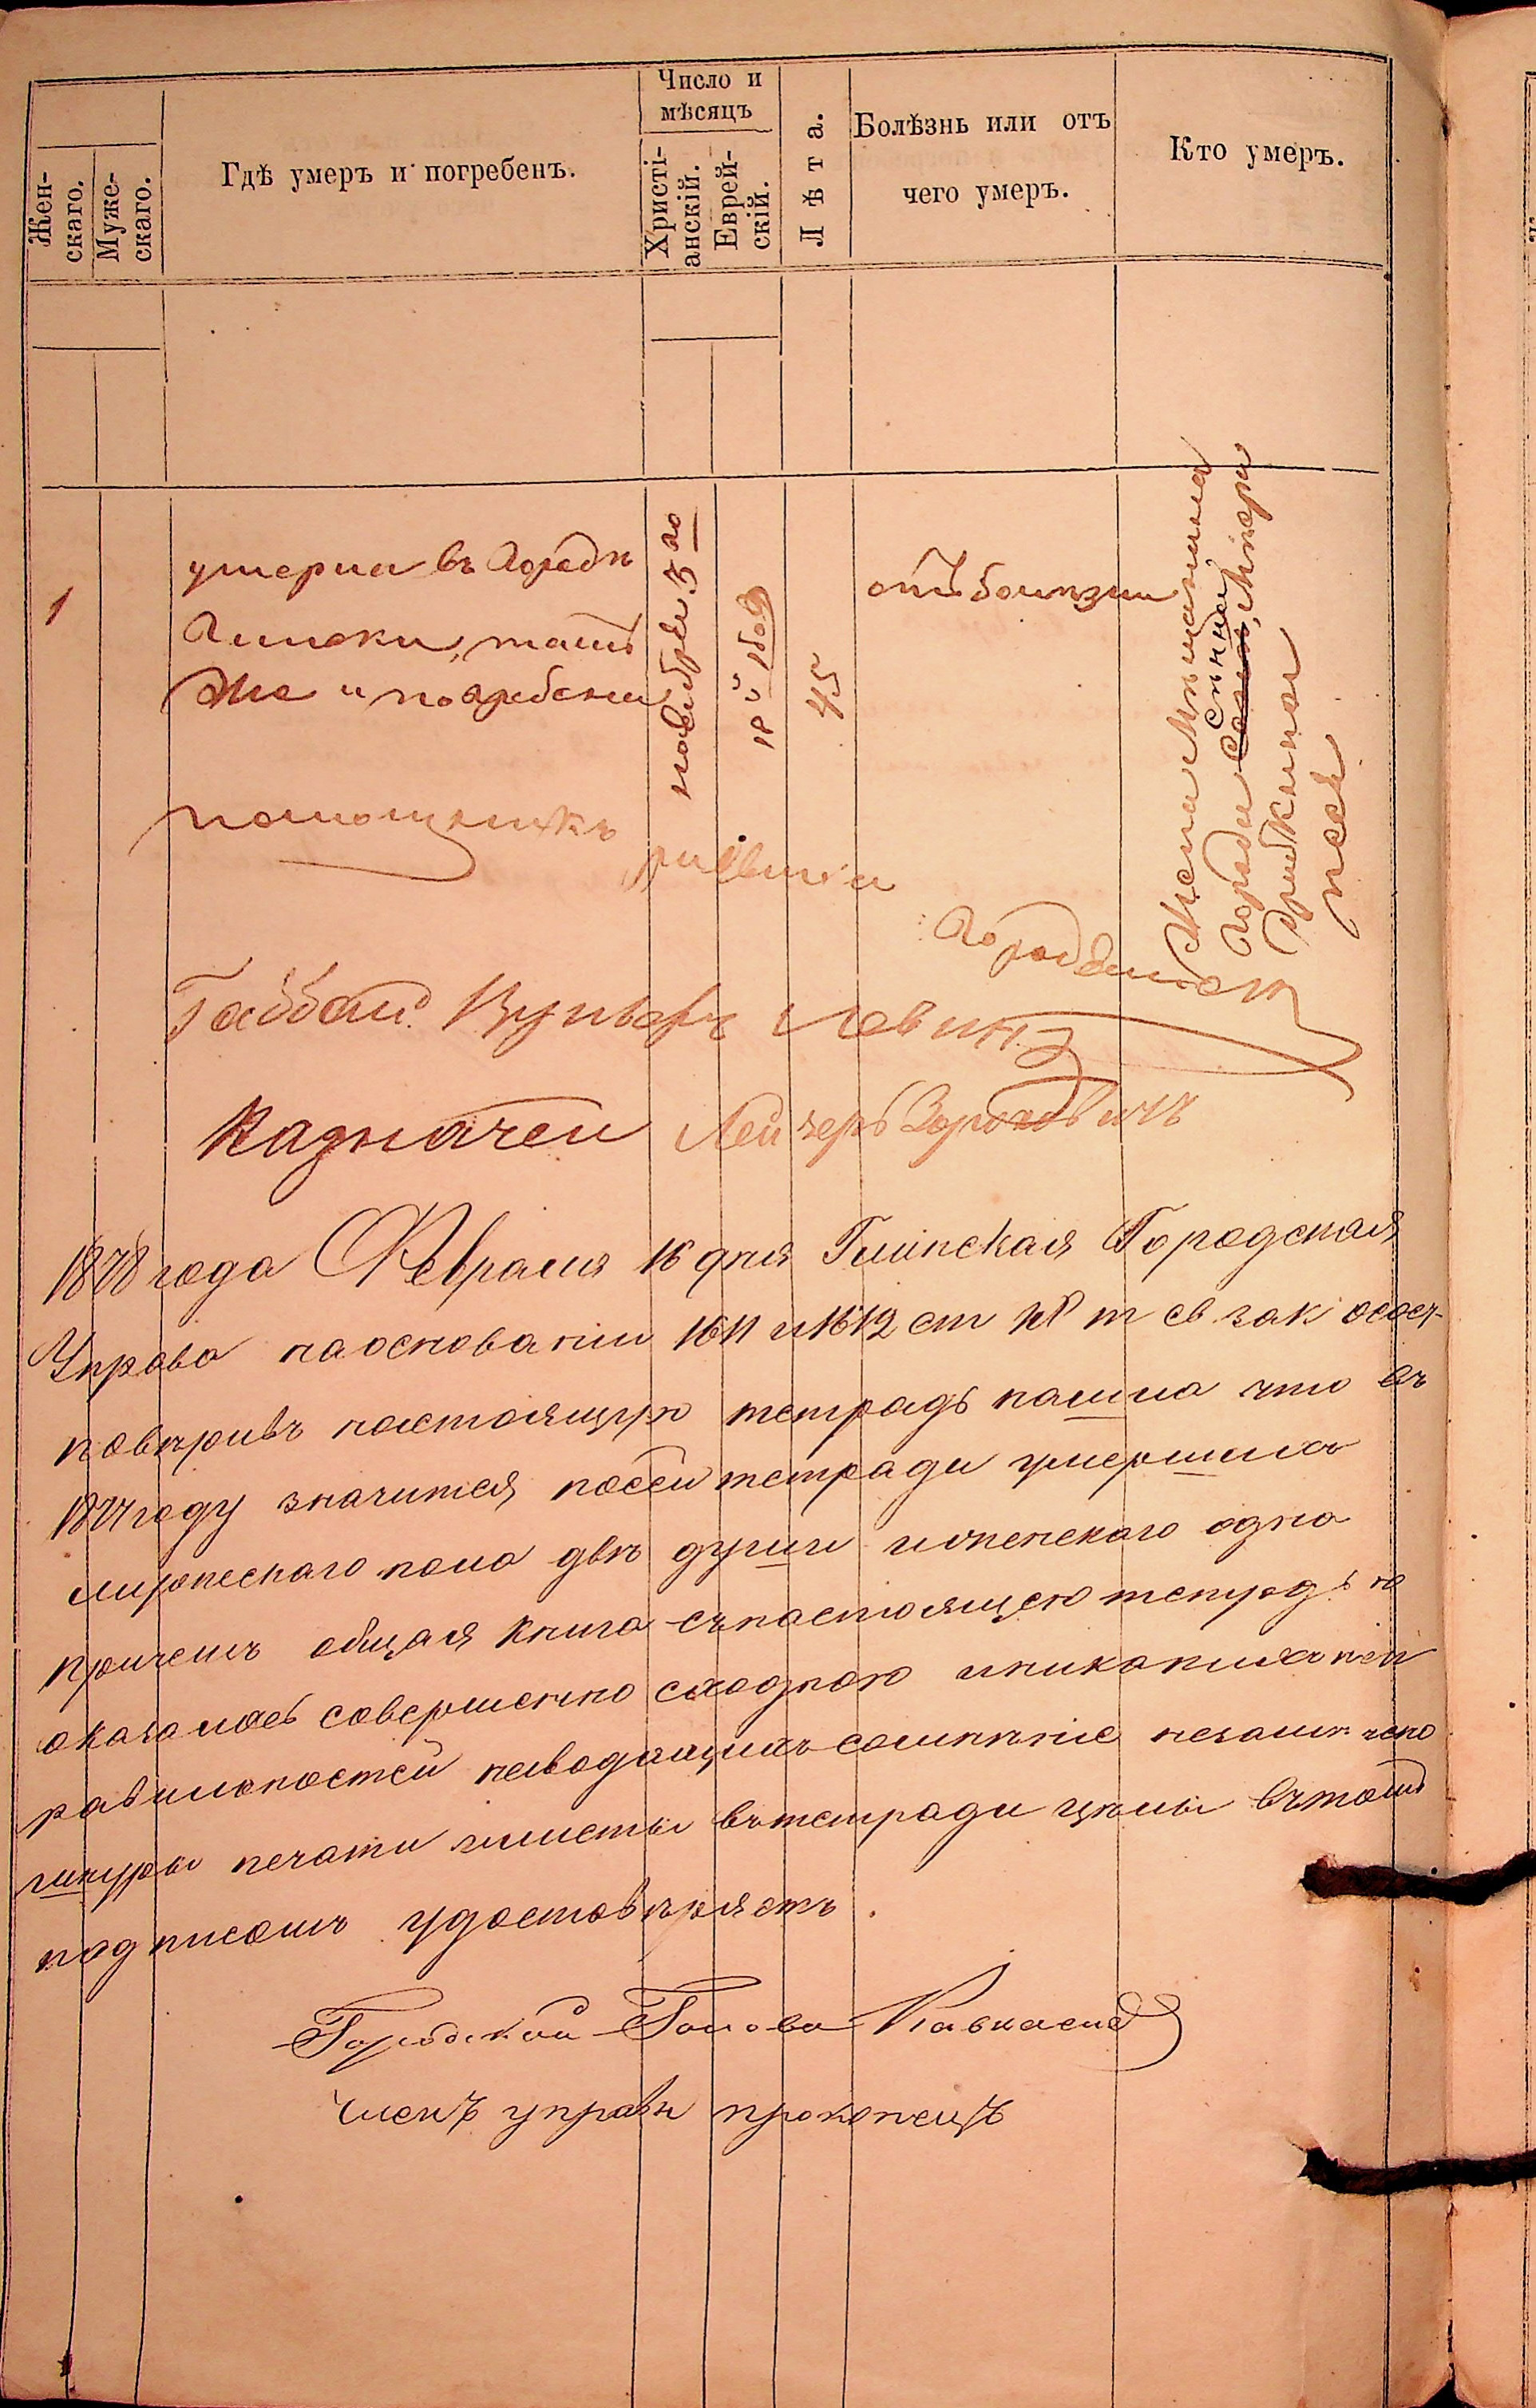 Жен-
скаго.
Муже-
скаго.
Гдѣ умеръ и погребенъ.
Число и
мѣсяцъ
Христі-
анскій.
Еврей-
скій.
Лѣта.
Болѣзнь или отъ
чего умеръ.
Кто умеръ.
1
умерла въ городѣ
Глинскѣ, тамъ
же и погребена
ноября 5 го
45
отъ болѣзни
Жена мѣщанина
города
помощникъ раввина
Городбинской
Габбай Вульфъ Левинъ
Казначей Лейзеръ
1878 года Февраля 16 дня Глинская Городская
Управа на основаніи 1611 и 1612 ст IX т св зак о сост
повѣривъ настоящую тетрадь нашла что въ
1877 году значится по сей тетради умершихъ
мужескаго пола двѣ души и женскаго одна
причемъ общая книга съ настоящею тетрадью
оказалась совершенно сходною и никакихъ неп
равильностей неводящихъ сомнѣніе незамѣчено
шнуры печати и листы въ тетради цѣлы въ томъ
подписомъ удостовѣряетъ.
Городской Голова
Членъ управы Прокопецъ